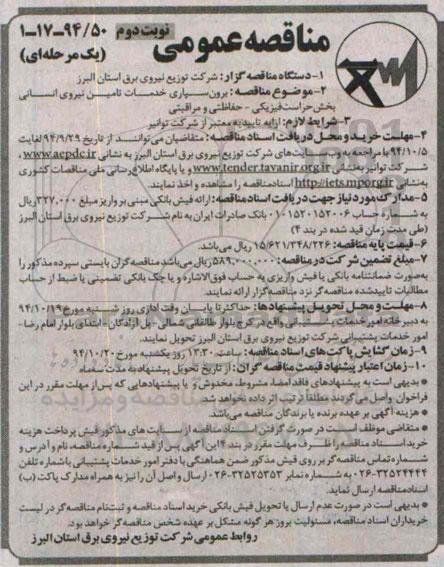 مناقصه عمومی
نوبت دوم
۹۴/۵۰-۱۷-۱
(یک مرحله‌ای)
۱-دستگاه مناقصه گزار: شرکت توزیع نیروی برق استان البرز
۲-موضوع مناقصه: برون‌سپاری خدمات تامین نیروی انسانی
بخش حراست فیزیکی - حفاظتی و مراقبتی
۳-شرایط لازم: ارایه تاییدیه معتبر از شرکت توانیر
۴-مهلت خرید و محل دریافت اسناد مناقصه: متقاضیان می‌توانند از تاریخ ۹۴/۹/۲۹ لغایت
۹۴/۱۰/۵ با مراجعه به وب سایت‌های شرکت توزیع نیروی برق استان البرز به نشانی www.aepdc.ir
شرکت توانیر به نشانی www.tender.tavanir.org.ir و یا پایگاه اطلاع‌رسانی ملی مناقصات کشوری
به نشانی http://iets.mporg.ir اسناد مناقصه را مشاهده و اخذ نمایند.
۵-مدارک مورد نیاز جهت دریافت اسناد مناقصه: ارائه فیش بانکی مبنی بر واریز مبلغ ۳۲۷،۰۰۰ ریال
به شماره حساب ۰۱۰۱۵۲۰۱۵۲۰۰۶ بانک صادرات ایران به نام شرکت توزیع نیروی برق استان البرز
(طی مدت زمان قید شده در بند ۴)
۶-قیمت پایه مناقصه: ۱۵/۶۲۱/۳۴۸/۲۲۶ ریال می‌باشد.
۷-مبلغ تضمین شرکت در مناقصه: ۵۸۹،۰۰۰،۰۰۰ ریال می‌باشد مناقصه گران بایستی سپرده مذکور را
به‌صورت ضمانتنامه بانکی یا فیش واریزی به حساب فوق‌الاشاره و یا چک بانکی تضمینی یا ضبط از حساب
مطالبات تایید شده مناقصه گر نزد مناقصه گزار ارائه نمایند.
۸-مهلت و محل تحویل پیشنهادها: حداکثر تا پایان وقت اداری روز شنبه مورخ ۹۴/۱۰/۱۹
به دبیرخانه امور خدمات پشتیبانی واقع در کرج بلوار طالقانی شمالی - پل آزادگان - ابتدای بلوار امام رضا -
امور خدمات پشتیبانی شرکت توزیع نیروی برق استان البرز تحویل نمایند.
۹-زمان گشایش پاکت‌های اسناد مناقصه: ساعت ۱۳:۳۰ روز یکشنبه مورخ ۹۴/۱۰/۲۰
۱۰-زمان اعتبار پیشنهاد قیمت مناقصه گران: از تاریخ تحویل پیشنهاد به مدت سه ماه
* بدیهی است به پیشنهادهای فاقد امضا، مشروط، مخدوش و یا پیشنهادهایی که پس از مهلت مقرر در این
فراخوان واصل می‌گردند مطلقاً ترتیب اثر داده نخواهد شد.
* هزینه آگهی بر عهده برنده یا برندگان مناقصه می‌باشد.
* متقاضی موظف است در صورت گرفتن اسناد مناقصه از سایت های مذکور فیش پرداخت هزینه
خرید اسناد مناقصه را ظرف مهلت مقرر در بند ۴ این آگهی پس از قید شماره مناقصه، نام و آدرس و
شماره تماس مناقصه گر بر روی فیش مذکور ضمن هماهنگی با دفتر امور خدمات پشتیبانی با شماره تلفن
۰۲۶-۳۲۵۲۴۴۴۴ به شماره نمابر ۰۲۶-۳۲۵۲۵۳۵۳ ارسال و اصل آن را نیز به همراه مدارک پاکت (ب)
اسناد مناقصه ارسال نماید.
* بدیهی است در صورت عدم ارسال یا تحویل فیش بانکی خرید اسناد مناقصه و ثبت نام مناقصه گر در لیست
خریداران اسناد مناقصه، مسئولیت بروز هر گونه مشکل بر عهده شخص مناقصه گر خواهد بود.
روابط عمومی شرکت توزیع نیروی برق استان البرز